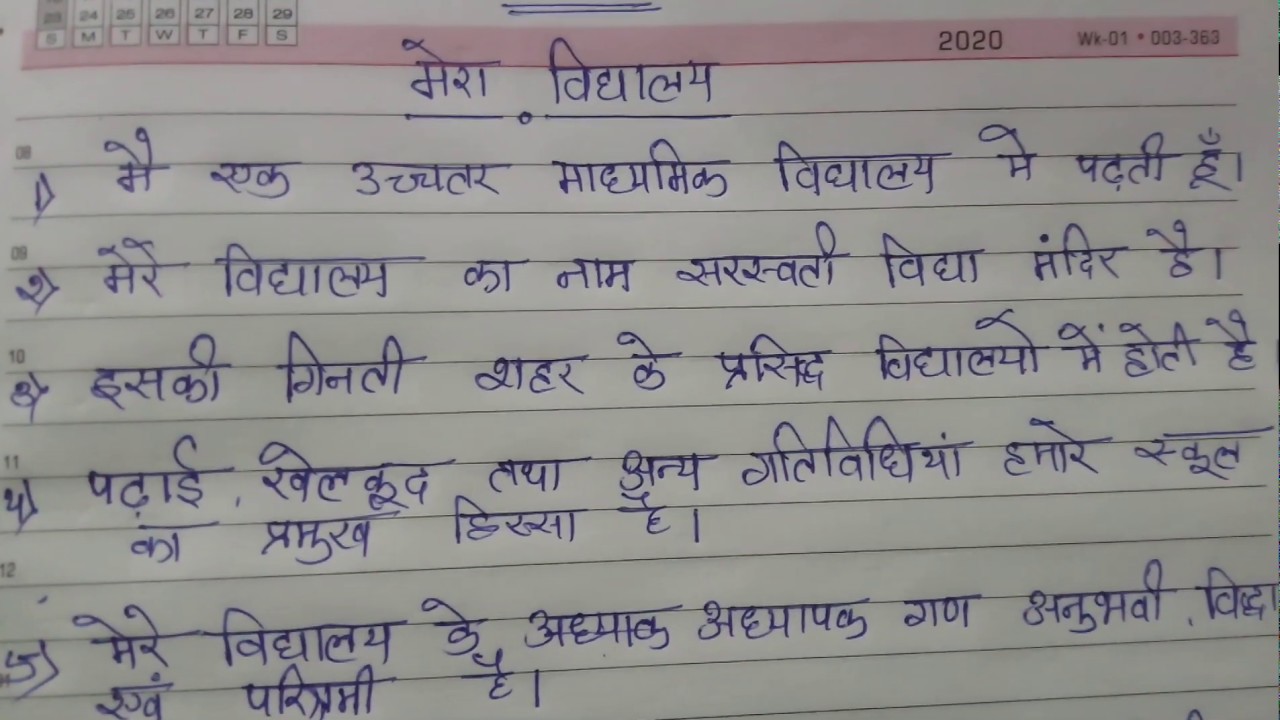 23 24 25 26 27 28 29
S M T W T F S
2020 Wk-01 • 003-363
मेरा विद्यालय
08
1) मै एक उच्चतर माध्यमिक विद्यालय मे पढ़ती हूँ।
09
२) मेरे विद्यालय का नाम सरस्वती विद्या मंदिर है।
10
३) इसकी गिनती शहर के प्रसिद्ध विद्यालयो में होती है
11
४) पढ़ाई, खेलकूद तथा अन्य गतिविधियां हमारे स्कूल
का प्रमुख हिस्सा है।
12
५) मेरे विद्यालय के अध्याक अध्यापक गण अनुभवी, विद्वा
एवं परिश्रमी है।